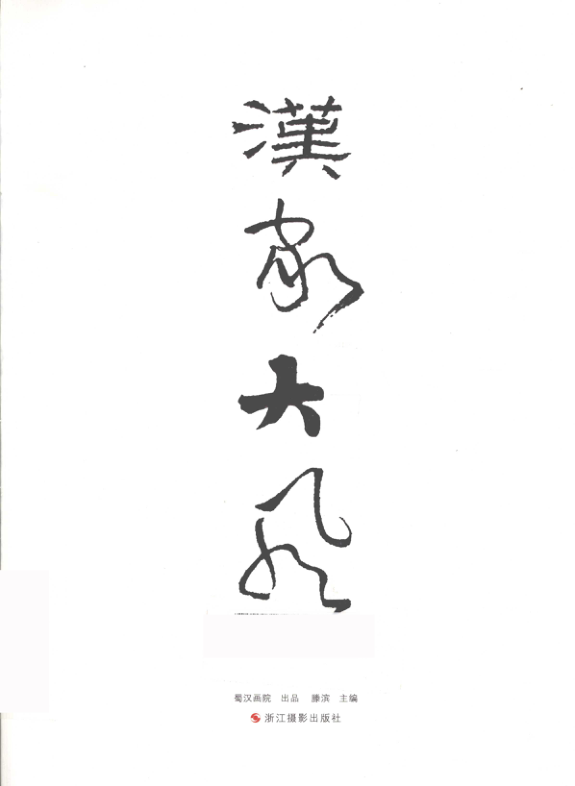 漢家大风
蜀汉画院 出品 滕滨 主编
浙江摄影出版社